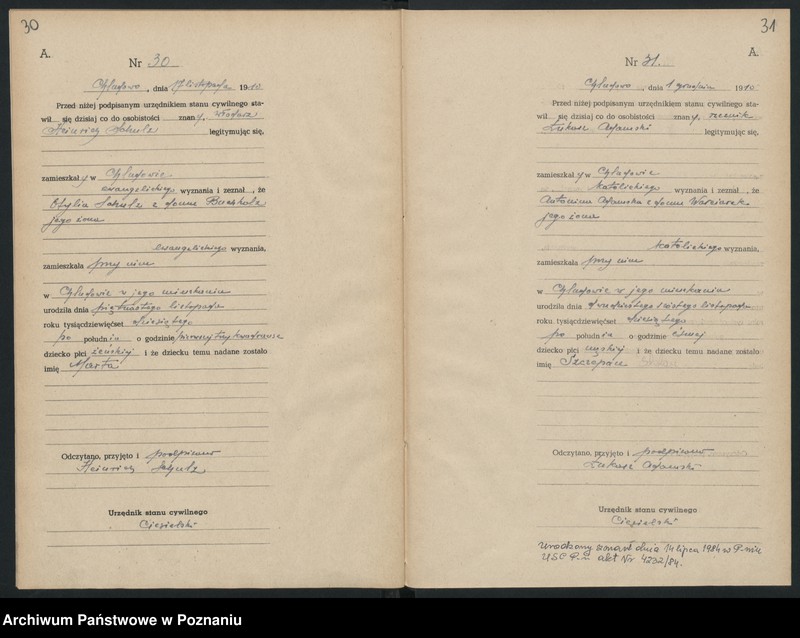 30
A.
Nr 30
Człuchowo, dnia 17 listopada 1910
Przed niżej podpisanym urzędnikiem stanu cywilnego sta-
wił się dzisiaj co do osobistości znany,
Heinrich Schulz legitymując się,
zamieszkały w
ewangelickiego wyznania i zeznał, że
Otylia Schulz z domu Buchholz
jego żona
ewangelickiego wyznania,
zamieszkała przy nim
w jego mieszkaniu
urodziła dnia piętnastego listopada
roku tysiącdziewięćset dziesiątego
po południu o godzinie pierwszej trzy kwadranse
dziecko płci żeńskiej i że dziecku temu nadane zostało
imię Marta
Odczytano, przyjęto i podpisano
Heinrich Schulz
Urzędnik stanu cywilnego
Ciesielski
31
A.
Nr 31.
dnia 1 grudnia 1910
Przed niżej podpisanym urzędnikiem stanu cywilnego sta-
wił się dzisiaj co do osobistości znany, rzeźnik
Łukasz Adamski legitymując się,
zamieszkały w
katolickiego wyznania i zeznał, że
Antonina Adamska z domu Warciarek
jego żona
katolickiego wyznania,
zamieszkała przy nim
w jego mieszkaniu
urodziła dnia dwudziestego szóstego listopada
roku tysiącdziewięćset dziesiątego
po południu o godzinie ósmej
dziecko płci męskiej i że dziecku temu nadane zostało
imię Szczepan
Odczytano, przyjęto i podpisano
Łukasz Adamski
Urzędnik stanu cywilnego
Ciesielski
Urodzony zmarł dnia 14 lipca 1984 w P-niu
USC P-ń akt Nr 4232/84.
Archiwum Państwowe w Poznaniu